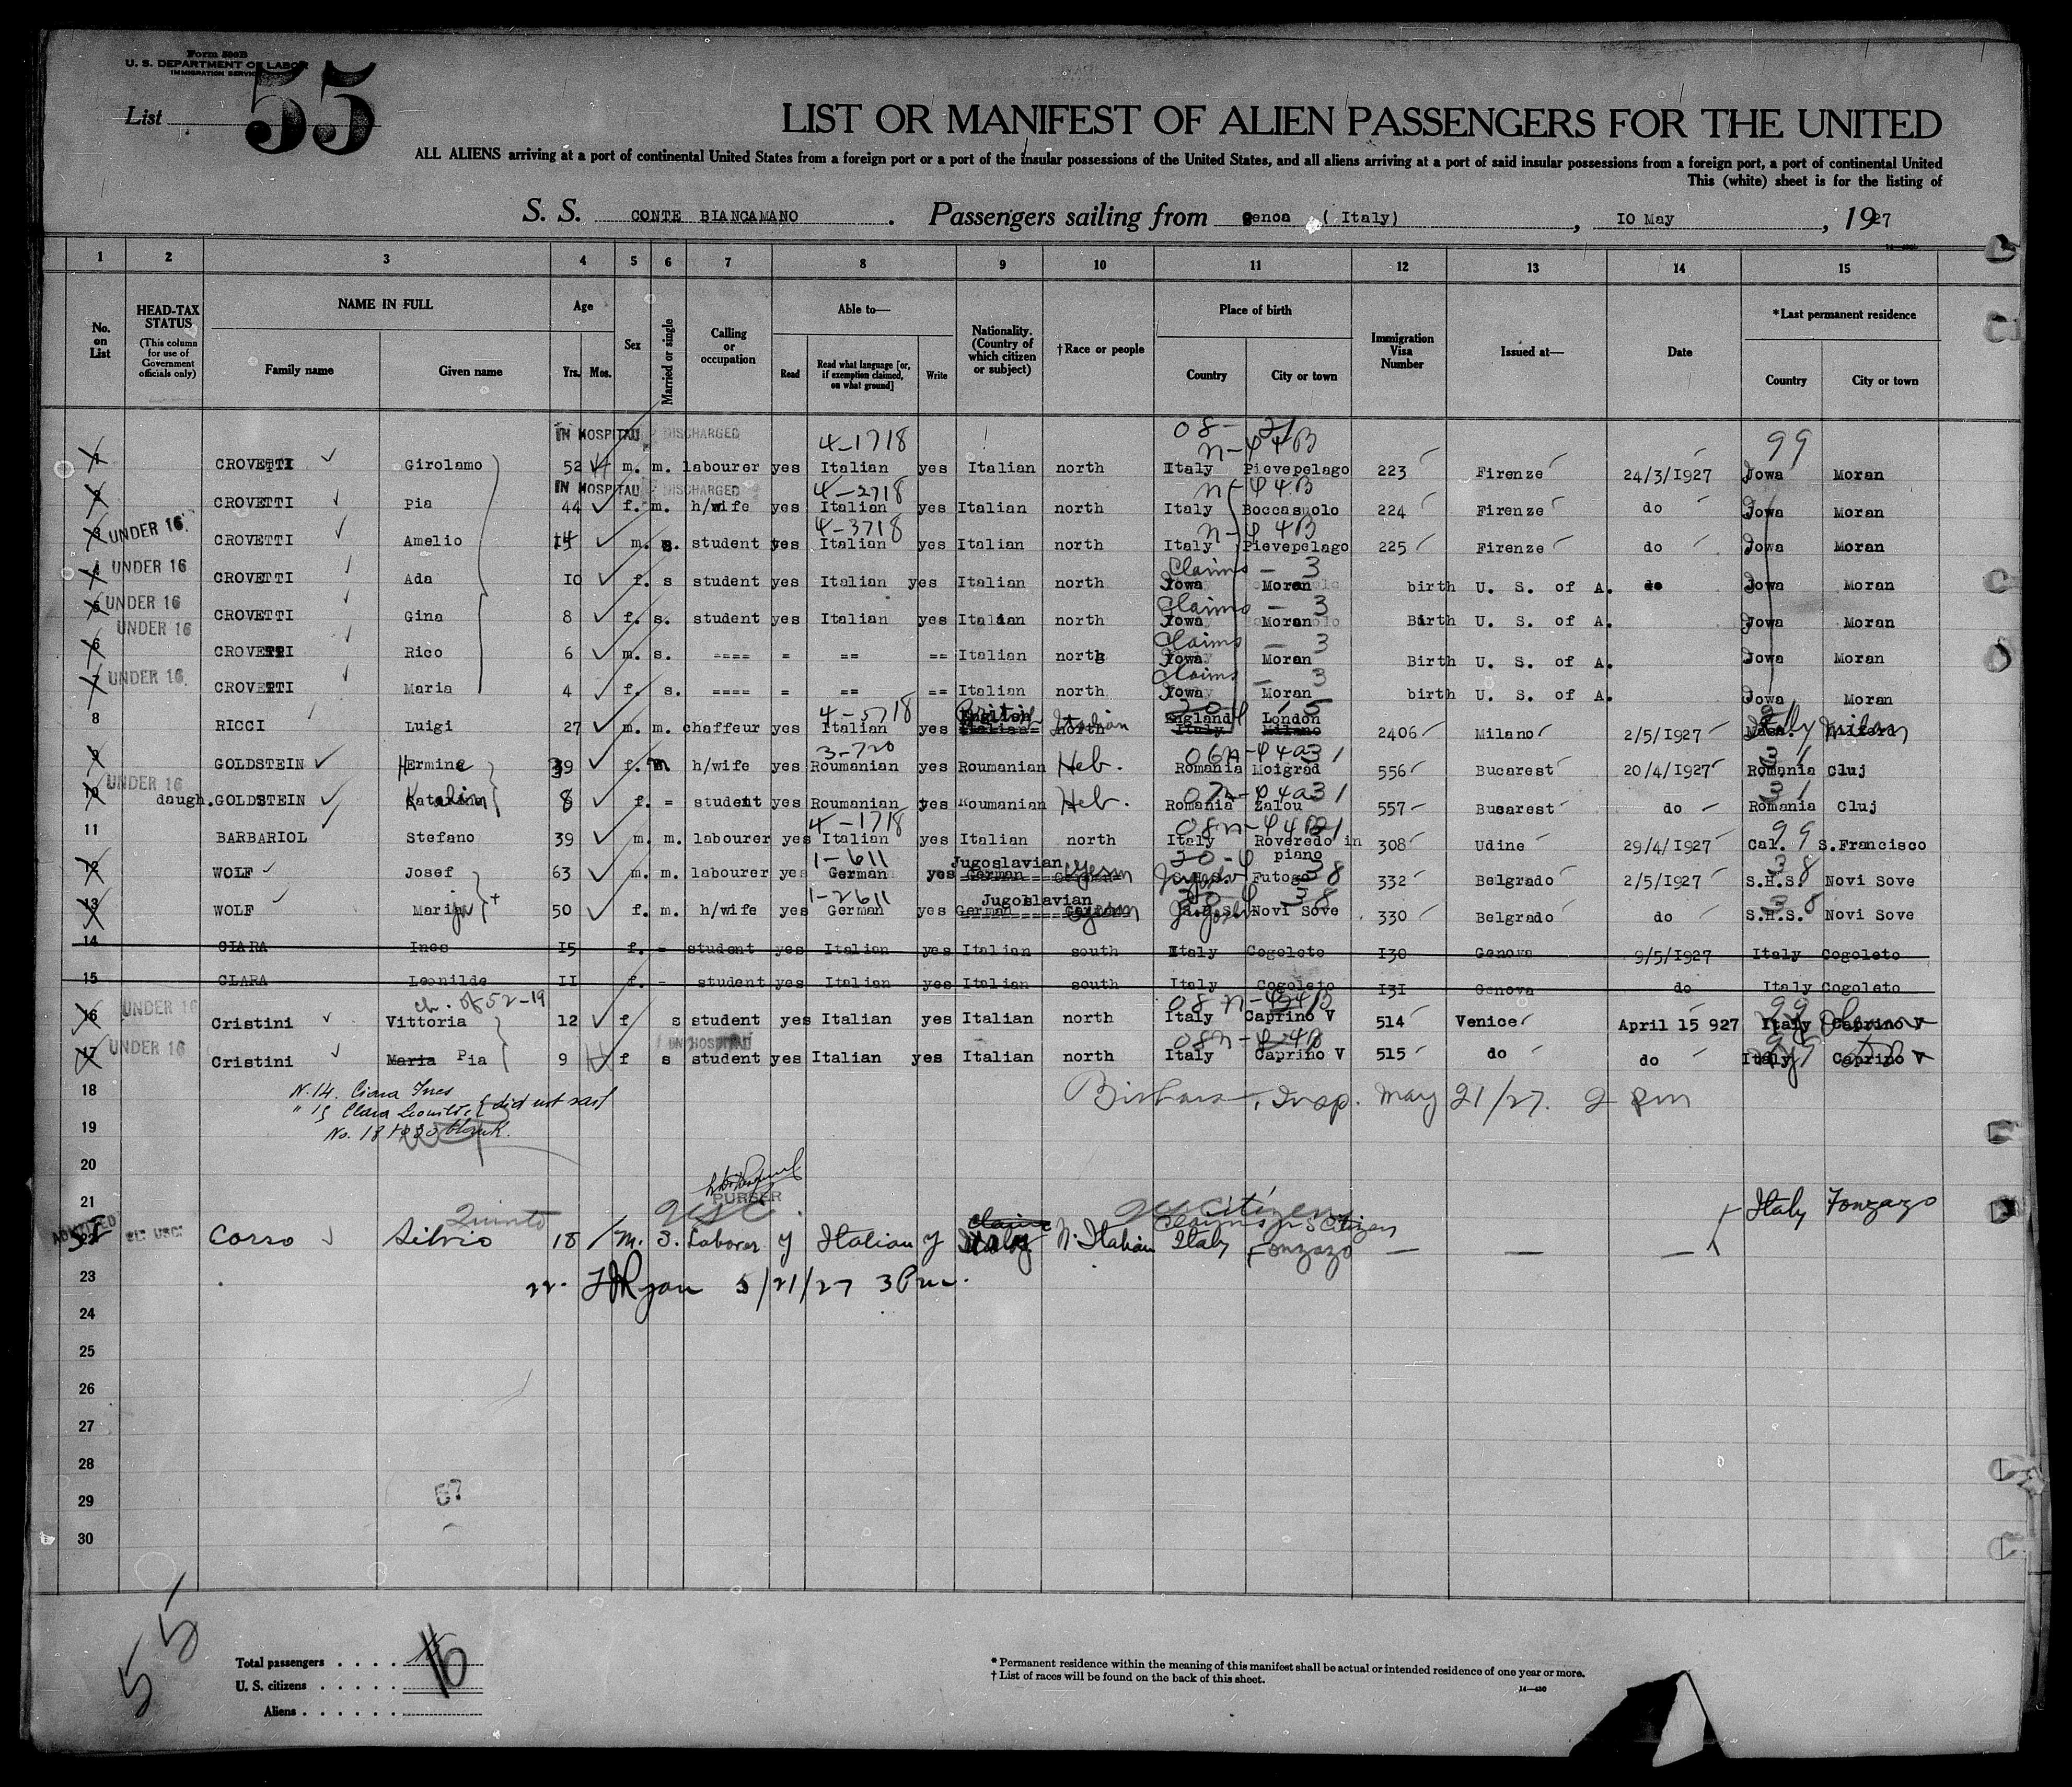 Form 500B
U. S. DEPARTMENT OF LABOR
IMMIGRATION SERVICE
List 55
LIST OR MANIFEST OF ALIEN PASSENGERS FOR THE UNITED
ALL ALIENS arriving at a port of continental United States from a foreign port or a port of the insular possessions of the United States, and all aliens arriving at a port of said insular possessions from a foreign port, a port of continental United
This (white) sheet is for the listing of
S. S. CONTE BIANCAMANO. Passengers sailing from genoa ( Italy), 10 May, 1927
1 2 3 4 5 6 7 8 9 10 11 12 13 14 15
No. on List
HEAD-TAX STATUS (This column for use of Government officials only)
NAME IN FULL Family name Given name
Age Yrs. Mos.
Sex
Married or single
Calling or occupation
Able to— Read Read what language [or, if exemption claimed, on what ground] Write
Nationality. (Country of which citizen or subject)
†Race or people
Place of birth Country City or town
Immigration Visa Number
Issued at—
Date
*Last permanent residence Country City or town
IN HOSPITAL DISCHARGED 4-1718 08- 21 n-44B 99
1 CROVETTI Girolamo 52 m. m. labourer yes Italian yes Italian north Italy Pievepelago 223 Firenze 24/3/1927 Iowa Moran
IN HOSPITAL DISCHARGED 4-2718 n-44B
2 CROVETTI Pia 44 f. m. h/wife yes Italian yes Italian north Italy Boccasuolo 224 Firenze do Iowa Moran
UNDER 16 4-3718 n-44B
3 CROVETTI Amelio 14 m. s. student yes Italian yes Italian north Italy Pievepelago 225 Firenze do Iowa Moran
UNDER 16 Claims - 3
4 CROVETTI Ada 10 f. s student yes Italian yes Italian north Iowa Moran birth U. S. of A. do Iowa Moran
UNDER 16 Claims - 3
5 CROVETTI Gina 8 f. s. student yes Italian yes Italian north Iowa Moran Birth U. S. of A. Iowa Moran
UNDER 16 Claims - 3
6 CROVETTI Rico 6 m. s. ==== = == == Italian north Iowa Moran Birth U. S. of A. Iowa Moran
UNDER 16 Claims - 3
7 CROVETTI Maria 4 f. s. ==== = == == Italian north Iowa Moran birth U. S. of A. Iowa Moran
4-5718 British English England London
8 RICCI Luigi 27 m. m. chaffeur yes Italian yes Italian north Italian Italy Milano 2406 Milano 2/5/1927 Italy Milan
3-720
9 GOLDSTEIN Hermine 39 f. m h/wife yes Roumanian yes Roumanian Heb. Romania Moigrad 556 Bucarest 20/4/1927 Romania Cluj
UNDER 16 31
10 daugh. GOLDSTEIN Katalin 8 f. = student yes Roumanian yes Roumanian Heb. Romania Zalou 557 Bucarest do Romania Cluj
4-1718 99
11 BARBARIOL Stefano 39 m. m. labourer yes Italian yes Italian north Italy Roveredo in piano 308 Udine 29/4/1927 Cal. S.Francisco
1-611 Jugoslavian 38
12 WOLF Josef 63 m. m. labourer yes German yes German Germ Futoge 332 Belgrado 2/5/1927 S.H.S. Novi Sove
1-2611 Jugoslavian 38
13 WOLF Marija 50 f. m. h/wife yes German yes German German Novi Sove 330 Belgrado do S.H.S. Novi Sove
14 CIARA Ines 15 f. - student yes Italian yes Italian south Italy Cogoleto 130 Genova 9/5/1927 Italy Cogoleto
15 CLARA Leonilde 11 f. - student yes Italian yes Italian south Italy Cogoleto 131 Genova do Italy Cogoleto
UNDER 16 ch. of 52-19
16 Cristini Vittoria 12 f s student yes Italian yes Italian north Italy Caprino V 514 Venice April 15 927 Italy Caprino V
UNDER 16 IN HOSPITAL
17 Cristini Maria Pia 9 f s student yes Italian yes Italian north Italy Caprino V 515 do do Italy Caprino V
18 N.14. Ciara Ines
" 15 Clara Leonilde did not sail
Insp. May 21/27. 2 pm
19 No. 18 to 30 blank.
20
21 PURSER
Quinto USC US Citizen Italy Fonzazo
ADMITTED 22 Corso Silvio 18 m. S. Laborer y Italian y Italy N. Italian Italy Fonzazo — — —
Claims US Citizen
23 22. Ryan 5/21/27 3 Pm.
24
25
26
27
28
29 57
30
55
Total passengers . . . . 16
U. S. citizens . . . . .
Aliens . . . . . .
* Permanent residence within the meaning of this manifest shall be actual or intended residence of one year or more.
† List of races will be found on the back of this sheet.
14—430